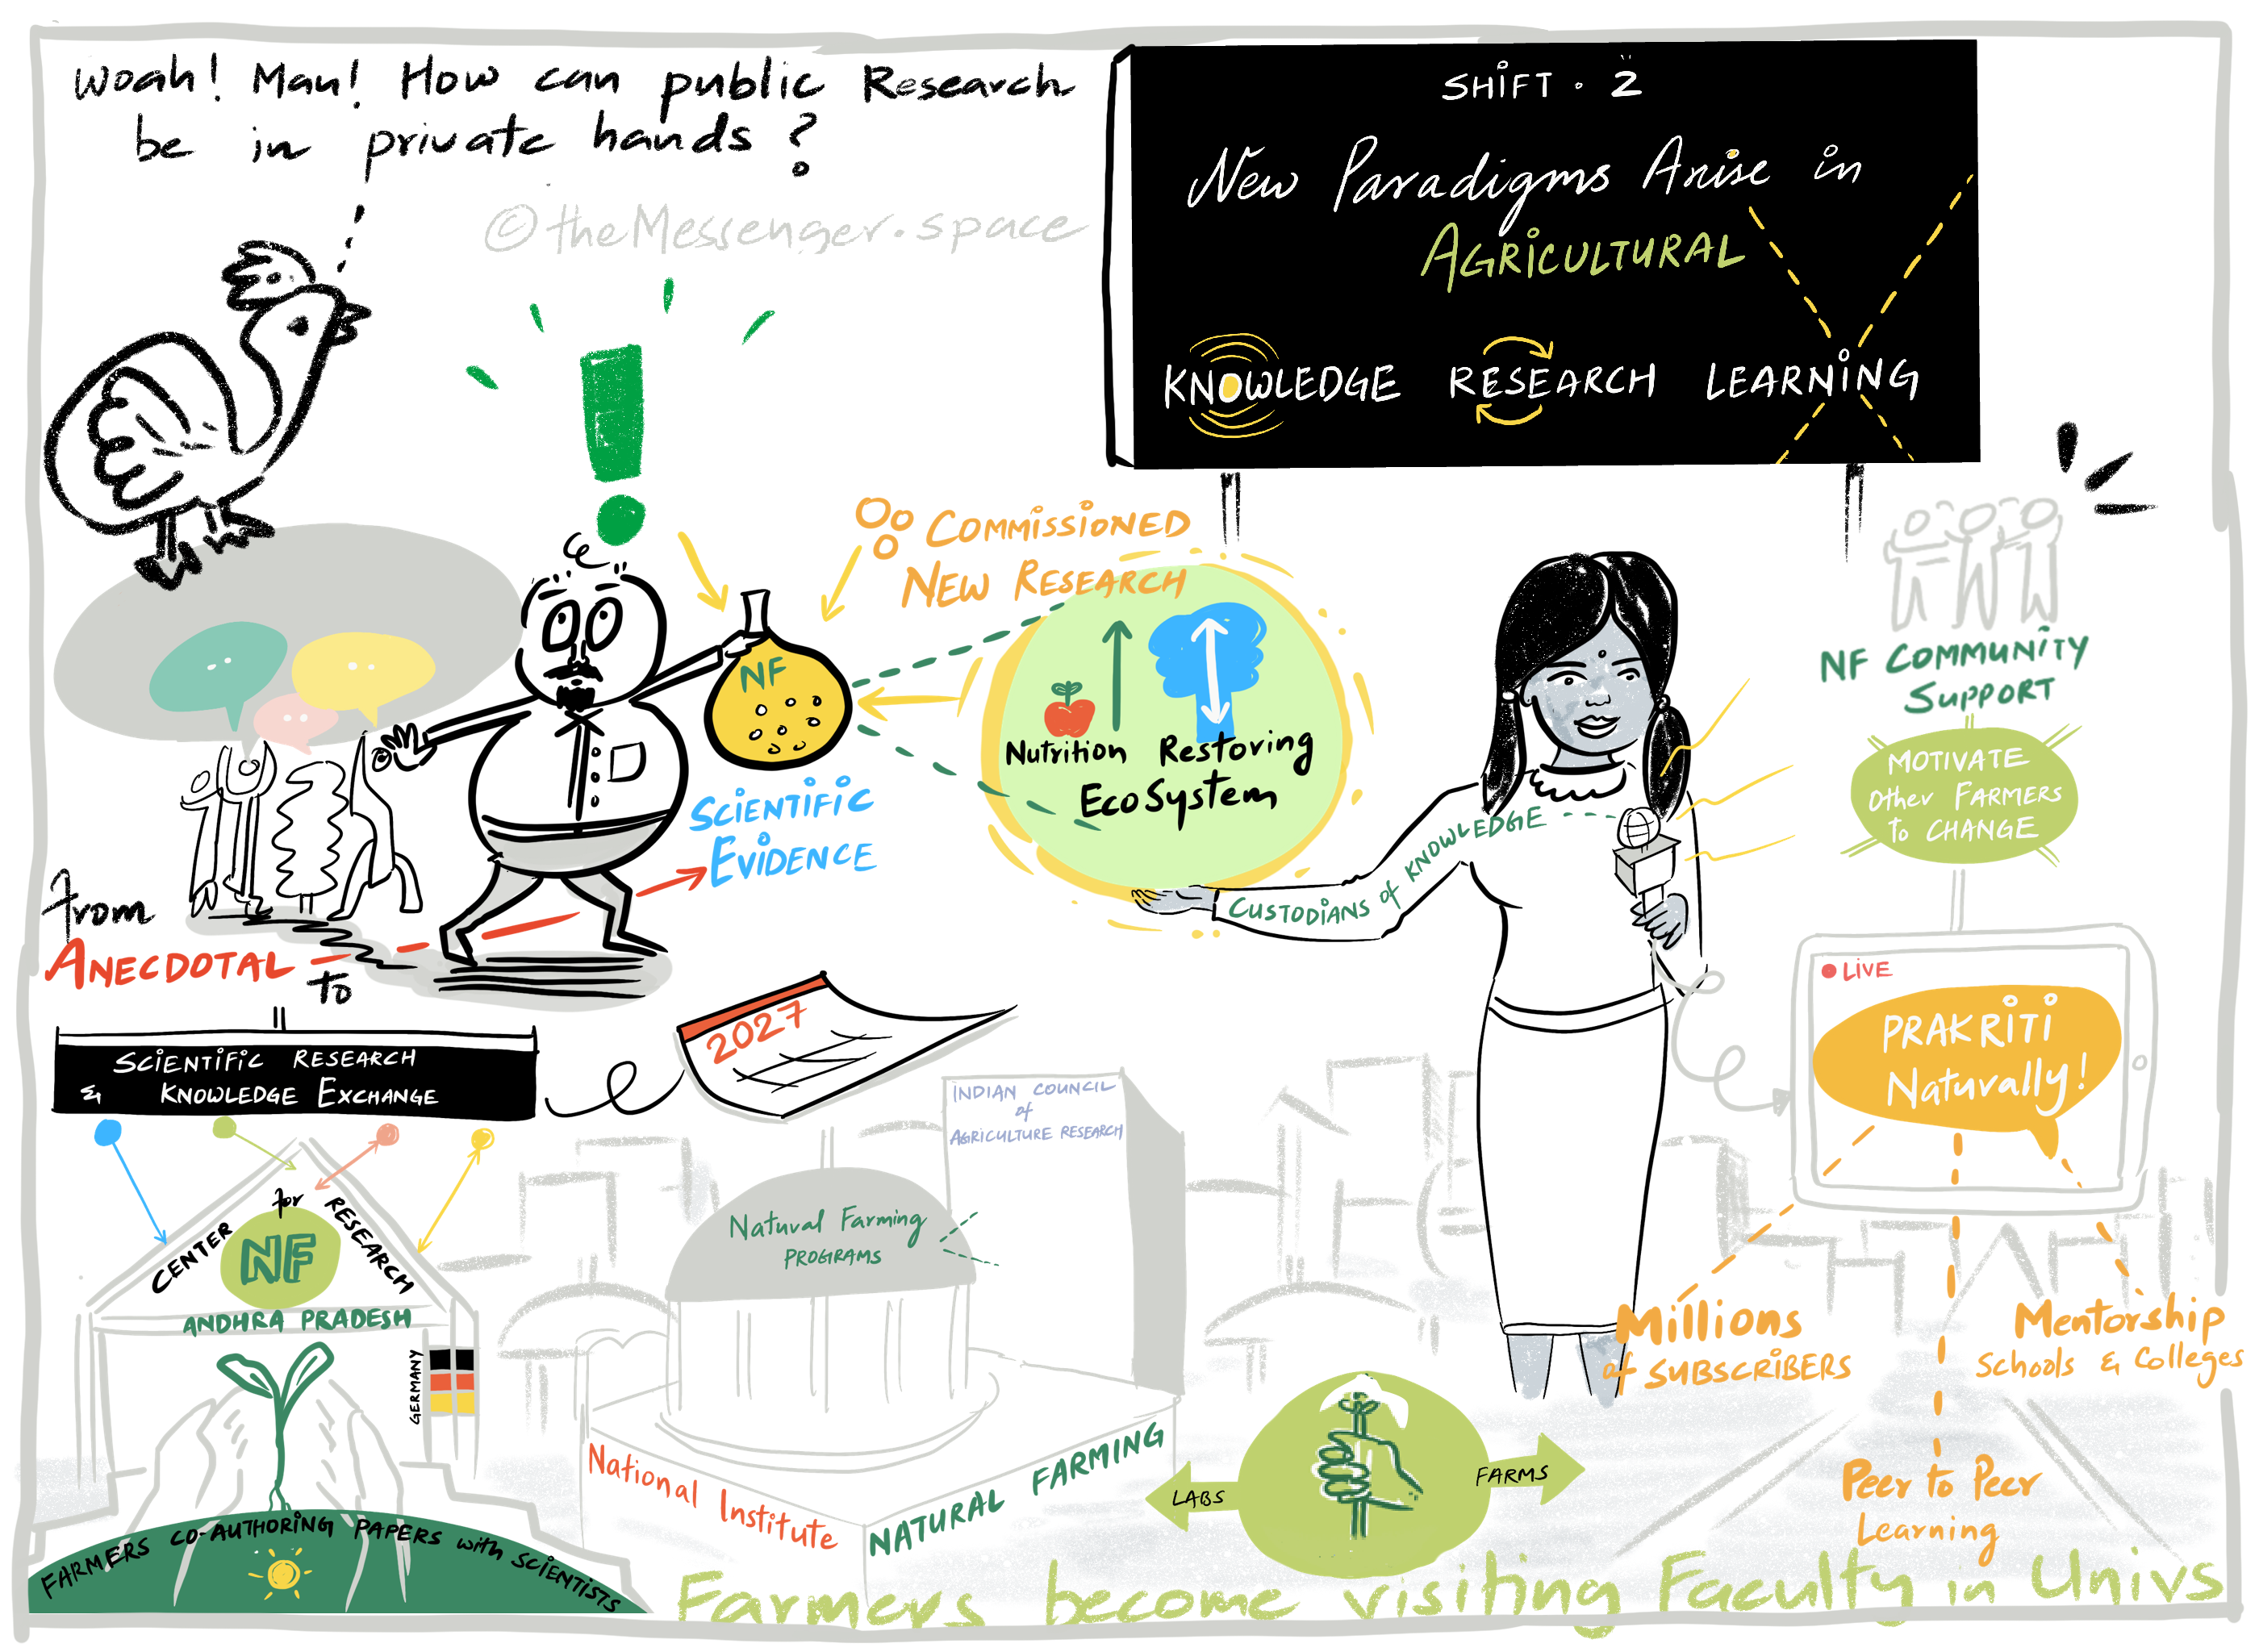 Woah! Man! How can public Research
be in private hands?
©theMessenger.space
SHIFT · 2
New Paradigms Arise in
AGRICULTURAL
KNOWLEDGE RESEARCH LEARNING
COMMISSIONED
NEW RESEARCH
NF
Nutrition Restoring
EcoSystem
SCIENTIFIC
EVIDENCE
From
ANECDOTAL
to
CUSTODIANS of KNOWLEDGE
NF COMMUNITY
SUPPORT
MOTIVATE
Other FARMERS
to CHANGE
LIVE
PRAKRITI
Naturally!
Millions
of SUBSCRIBERS
Mentorship
Schools & Colleges
Peer to Peer
Learning
2027
SCIENTIFIC RESEARCH
& KNOWLEDGE EXCHANGE
CENTER for RESEARCH
NF
ANDHRA PRADESH
GERMANY
FARMERS CO-AUTHORING PAPERS with SCIENTISTS
INDIAN COUNCIL
of
AGRICULTURE RESEARCH
Natural Farming
PROGRAMS
National Institute
NATURAL FARMING
LABS
FARMS
Farmers become visiting Faculty in Univs